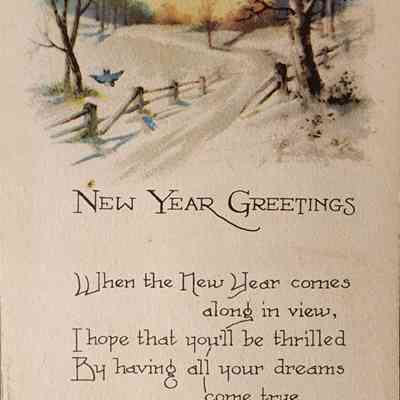 New Year Greetings
When the New Year comes
along in view,
I hope that you'll be thrilled
By having all your dreams
come true